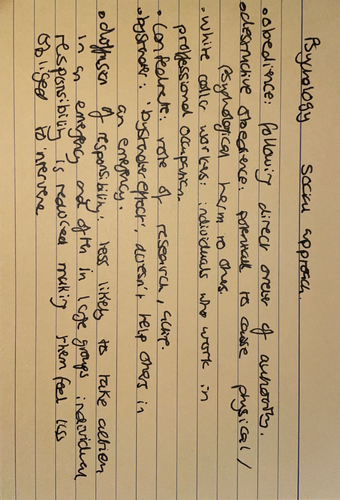 Psychology social approach.
• obedience: following direct order of authority.
• destructive obedience: potential to cause physical /
psychological harm to others.
• white collar workers: individuals who work in
professional occupation.
• Confederate: role of research, actor.
• bystander: 'bystander effect', doesn't help others in
an emergency.
• diffusion of responsibility: less likely to take action
in an emergency and often in large groups individual
responsibility is reduced making them feel less
obliged to intervene